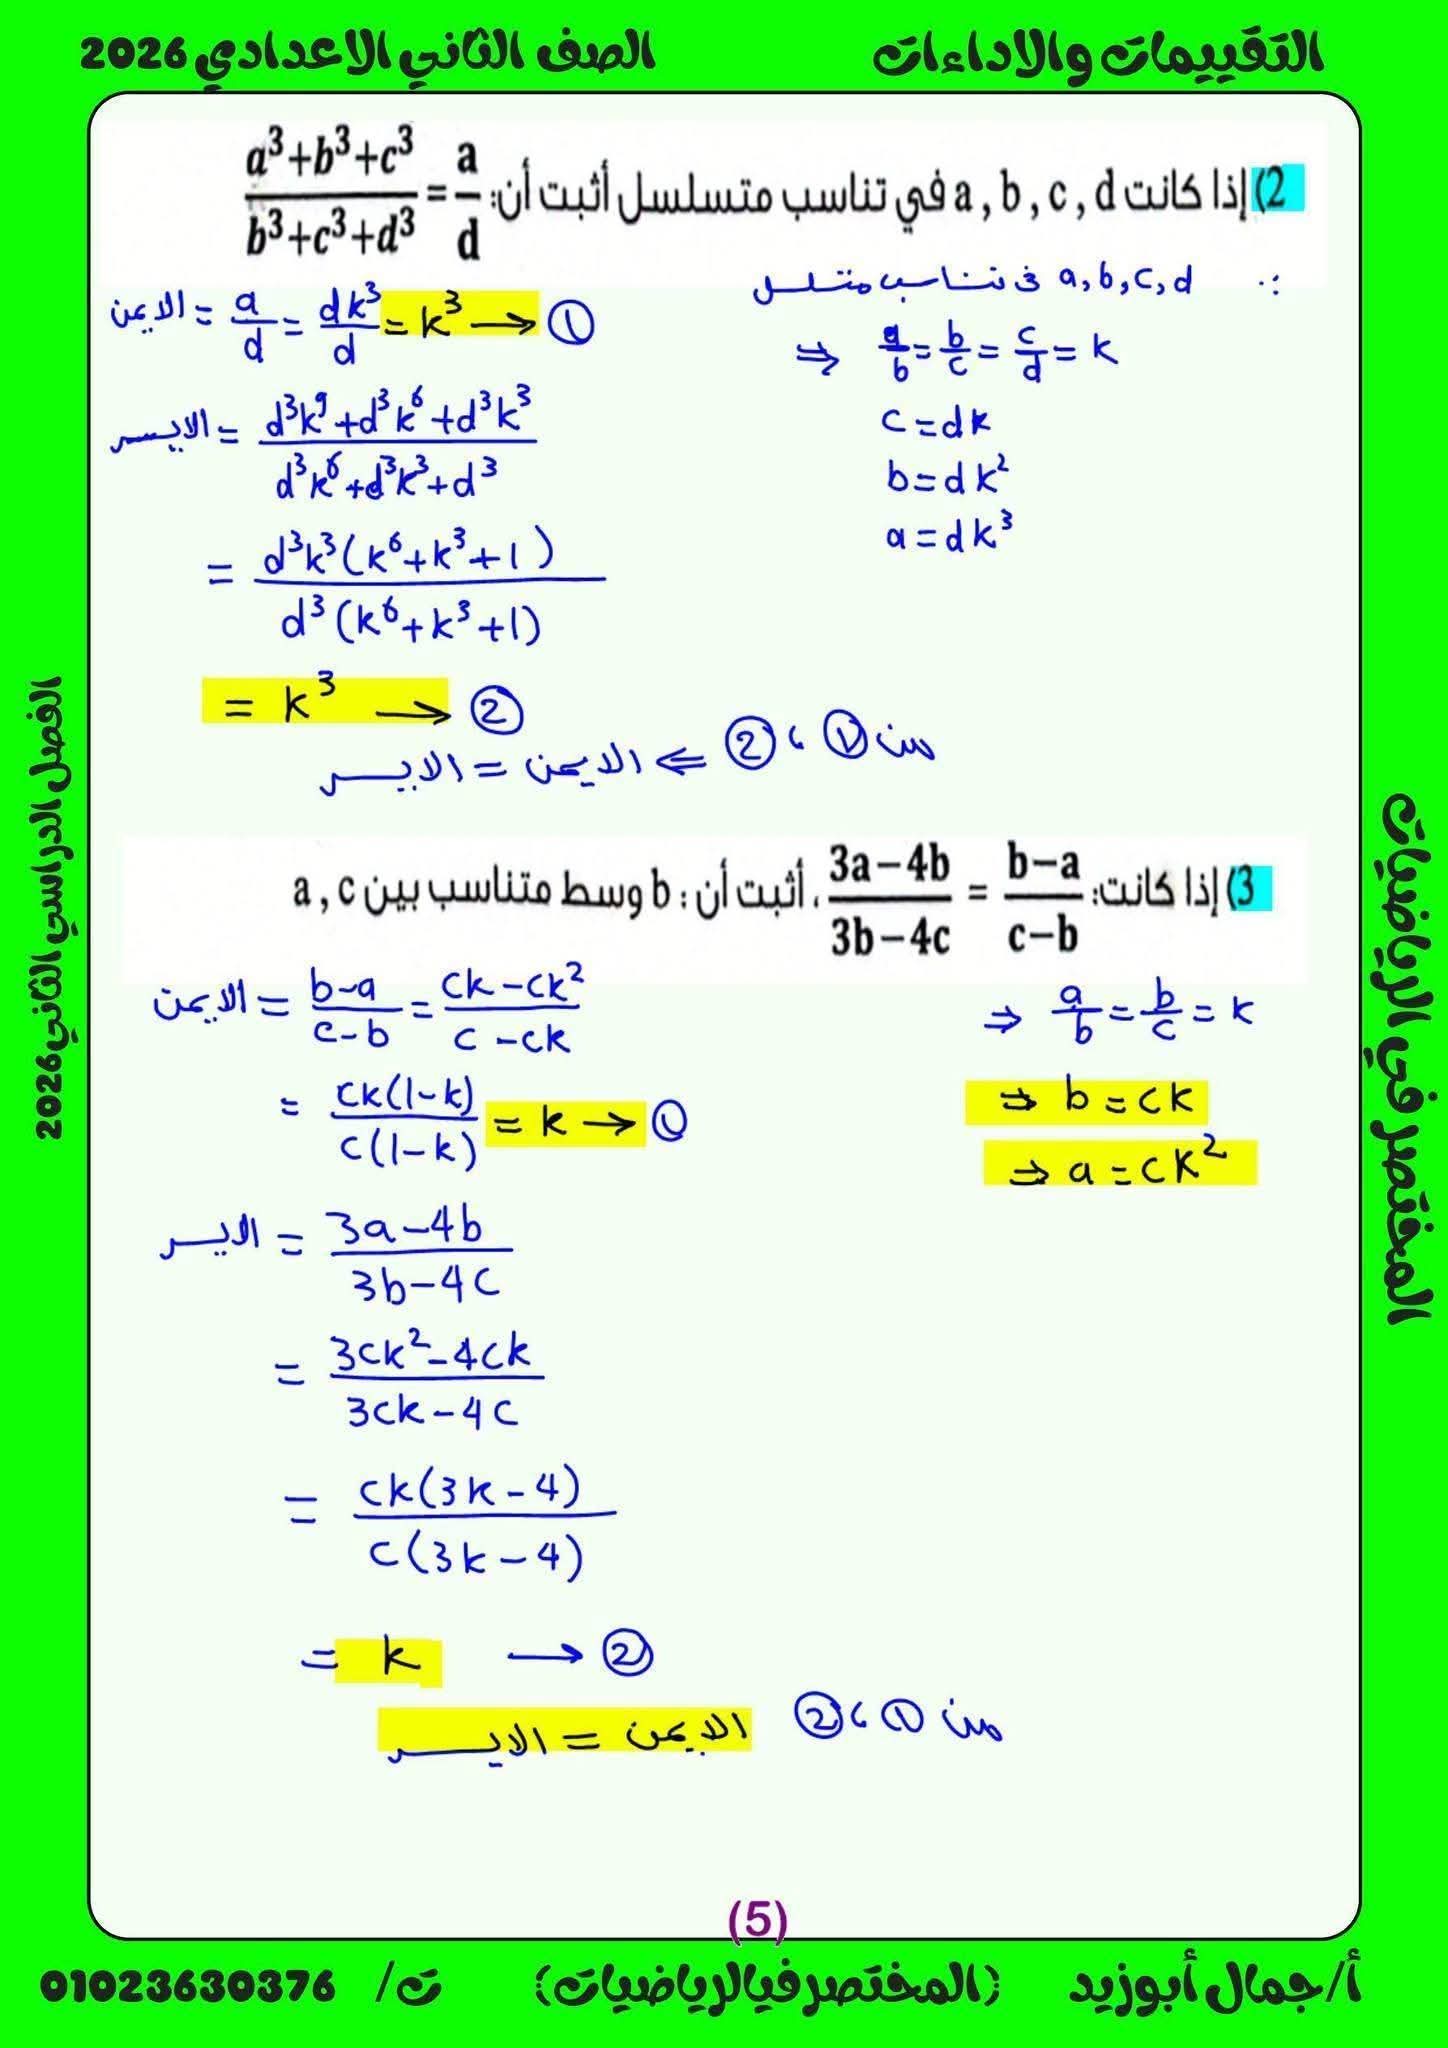 التقييمات والاداءات
الصف الثاني الاعدادي 2026
2) إذا كانت a , b , c , d في تناسب متسلسل أثبت أن: (a³+b³+c³)/(b³+c³+d³) = a/d
∵ a, b, c, d في تناسب متسلسل
⇒ a/b = b/c = c/d = k
c = dk
b = dk²
a = dk³
الايمن = a/d = dk³/d = k³ → ①
الايسر = (d³k⁹+d³k⁶+d³k³)/(d³k⁶+d³k³+d³)
= d³k³(k⁶+k³+1)/d³(k⁶+k³+1)
= k³ → ②
من ① ، ② ⇐ الايمن = الايسر
3) إذا كانت: (b−a)/(c−b) = (3a−4b)/(3b−4c) ، أثبت أن : b وسط متناسب بين a , c
⇒ a/b = b/c = k
⇒ b = ck
⇒ a = ck²
الايمن = (b−a)/(c−b) = (ck−ck²)/(c−ck)
= ck(1−k)/c(1−k) = k → ①
الايسر = (3a−4b)/(3b−4c)
= (3ck²−4ck)/(3ck−4c)
= ck(3k−4)/c(3k−4)
= k → ②
من ① ، ② الايمن = الايسر
(5)
الفصل الدراسي الثاني 2026
المختصر في الرياضيات
أ/جمال أبوزيد (المختصر فيالرياضيات) ت/ 01023630376